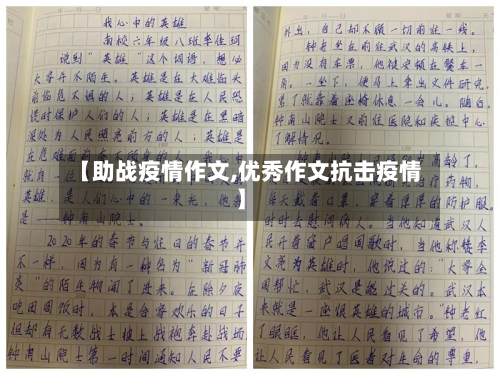 我心中的英雄
南校六年级八班李佳
说到“英雄”这个词语，想必
大家并不陌生。英雄是在大难临头
前临危不惧的人；英雄是在人民恐
慌时保护人们的人；英雄是在黑暗
深处为人民照亮前方的人；英雄是
英雄，是人们心中的一束光，他
是——钟南山院士。
2020年的春节与往日的春节并
不一样，因为有一种名为“新冠肺
炎”的陌生物闯了进来。在除夕夜
吃团圆饭时，本是合家欢乐的日子
但却有无数战士披上战袍奔赴战场
钟南山院士第一时间通知人民不要
外出，自己却不顾一切前往一线。
钟老坐在前往武汉的高铁上，
因为没有车票，他被安顿在餐车一
角。一坐下，便马上拿出文件研究，
累了就靠着座椅休息一会儿。随后，
钟南山院士又前往医院和疾控中心
了解情况。
【助战疫情作文,优秀作文抗击疫情
】
每天戴着口罩，穿着厚厚的防护服，
时时去慰问病人。当他知道武汉人
民开着窗户唱国歌时，当他称赞李
文亮为英雄时，他说过的：“大家全
国帮忙，武汉是能过关的。武汉本
来就是一座很英雄的城市。”钟老红
了眼眶，他让人民看见了希望，他
让人民看见了医者对生命的尊重，